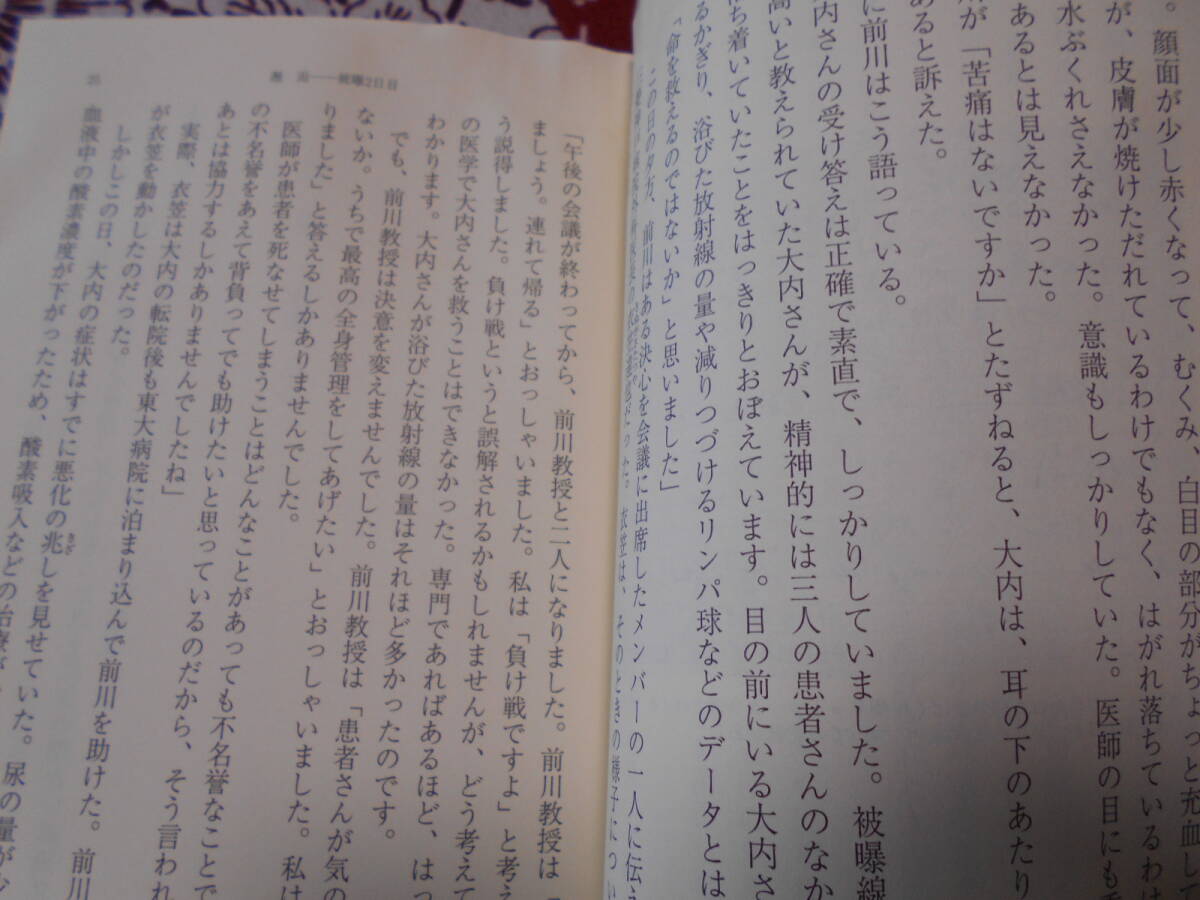 。顔面が少し赤くなって、むくみ、白目の部分がちょっと充血して
が、皮膚が焼けただれているわけでもなく、はがれ落ちているわけ
水ぶくれさえなかった。意識もしっかりしていた。医師の目にも
あるとは見えなかった。
が「苦痛はないですか」とたずねると、大内は、耳の下のあたり
あると訴えた。
に前川はこう語っている。
内さんの受け答えは正確で素直で、しっかりしていました。被曝線
高いと教えられていた大内さんが、精神的には三人の患者さんのなか
ち着いていたことをはっきりとおぼえています。目の前にいる大内さ
るかぎり、浴びた放射線の量や減りつづけるリンパ球などのデータとは
「命を救えるのではないか」と思いました」
この日の夕方、前川はある決心を会議に出席したメンバーの一人に伝え
だった。衣笠は、そのときの様子につい
25
被曝2日目
「午後の会議が終わってから、前川教授と二人になりました。前川教授は「
ましょう。連れて帰る」とおっしゃいました。私は「負け戦ですよ」と考え
う説得しました。負け戦というと誤解されるかもしれませんが、どう考えて
の医学で大内さんを救うことはできなかった。専門であればあるほど、はっ
わかります。大内さんが浴びた放射線の量はそれほど多かったのです。
でも、前川教授は決意を変えませんでした。前川教授は「患者さんが気の
ないか。うちで最高の全身管理をしてあげたい」とおっしゃいました。私は
りました」と答えるしかありませんでした。
医師が患者を死なせてしまうことはどんなことがあっても不名誉なことで
の不名誉をあえて背負ってでも助けたいと思っているのだから、そう言われ
あとは協力するしかありませんでしたね」
実際、衣笠は大内の転院後も東大病院に泊まり込んで前川を助けた。前川
が衣笠を動かしたのだった。
しかしこの日、大内の症状はすでに悪化の兆しを見せていた。尿の量が少
血液中の酸素濃度が下がったため、酸素吸入などの治療が